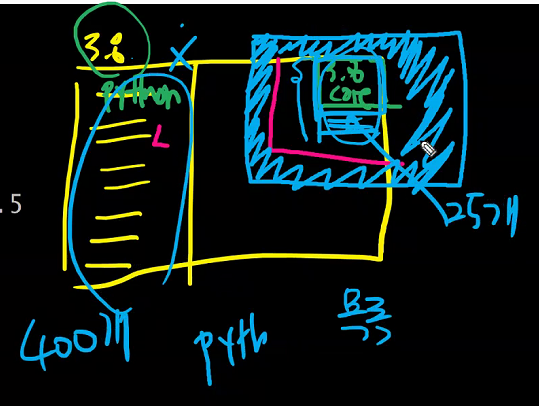 3.8
python
L
3.8
core
.5
25개
400개
pyth